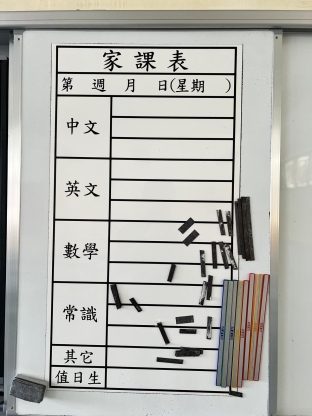 家課表
第 週 月 日(星期 )
中文
英文
數學
常識
其它
值日生